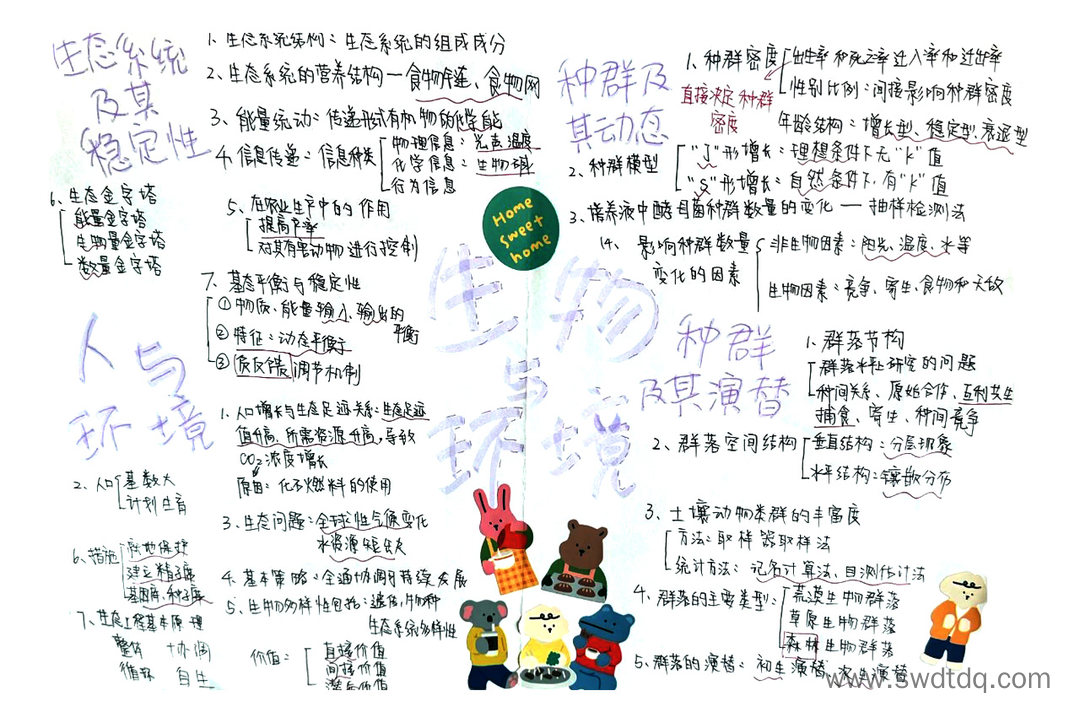 生态系统
及其
稳定性
1. 生态系统结构：生态系统的组成成分
2、生态系统的营养结构一食物链、食物网
3、能量流动：传递形式有机物的化学能
4. 信息传递：信息种类
物理信息：光声温度
化学信息：生物碱
行为信息
5、在农业生产中的作用
提高产率
对其有害动物进行控制
6、生态金字塔
能量金字塔
生物量金字塔
数量金字塔
7. 基态平衡与稳定性
① 物质、能量输入、输出的
平衡
② 特征：动态平衡
③ 负反馈调节机制
Home
sweet
home
生物
与
环境
种群及
其动态
1、种群密度
出生率和死亡率迁入率和迁出率
性别比例：间接影响种群密度
年龄结构：增长型、稳定型、衰退型
直接决定种群
密度
2、种群模型
"J"形增长：理想条件下无"K"值
"S"形增长：自然条件下，有"K"值
3、培养液中酵母菌种群数量的变化 — 抽样检测法
4、影响种群数量
变化的因素
非生物因素：阳光、温度、水等
生物因素：竞争、寄生、食物和天敌
种群
及其演替
1. 群落节构
群落水平上研究的问题
种间关系、原始合作、互利共生
捕食、寄生、种间竞争
2、群落空间结构
垂直结构：分层现象
水平结构：镶嵌分布
3、土壤动物类群的丰富度
方法：取样器取样法
统计方法：记名计算法、目测估计法
4、群落的主要类型：
荒漠生物群落
草原生物群落
森林生物群落
5、群落的演替：初生演替，次生演替
人与
环境
1、人口增长与生态足迹关系：生态足迹
值升高，所需资源升高，导致
CO2浓度增长
原因：化石燃料的使用
2、人口
基数大
计划生育
3、生态问题：全球性气候变化
水资源短缺
4、基本策略：全通协调可持续发展
5、生物多样性包括：遗传，物种
生态系统多样性
价值：
直接价值
间接价值
潜在价值
6、措施
就地保护
建立精子库
基因库，种子库
7、生态工程基本原理
整体 协调
循环 自生
www.swdtdq.com